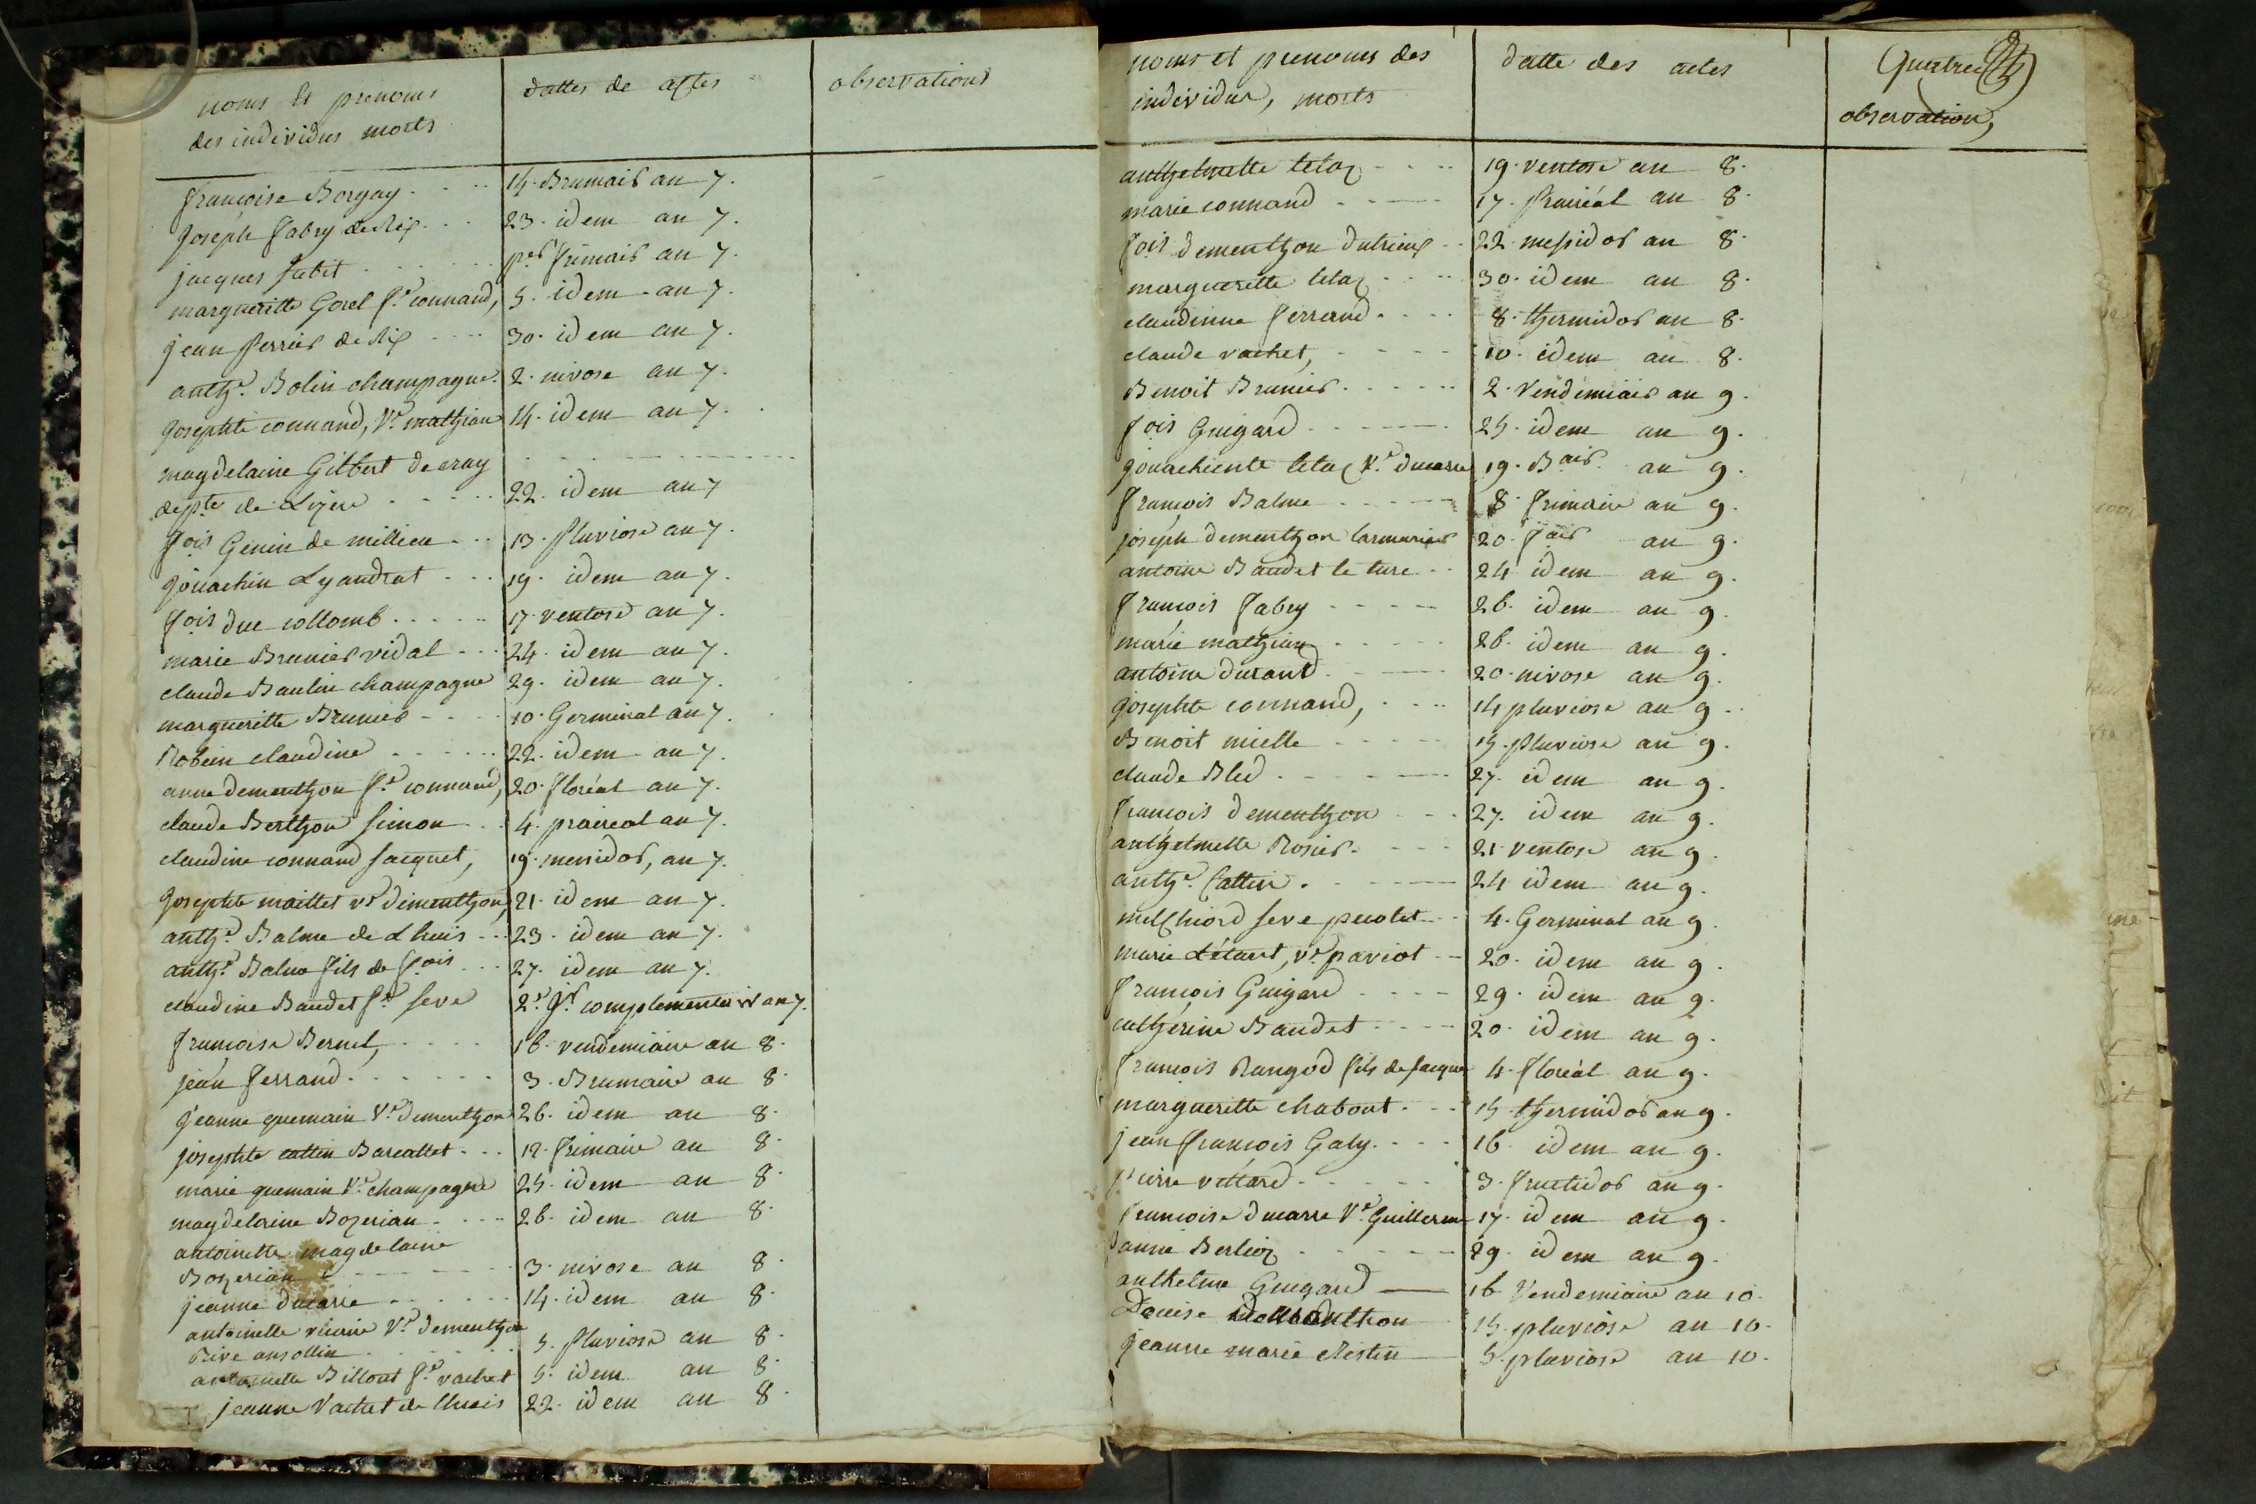 noms et prenoms
des individus morts
dattes de actes
observations
françoise Borgay 14. Brumair an 7.
Joseph fabry de Rix 23. idem an 7.
jacques fabit per frimair an 7.
margueritte Gorel fe connand, 5. idem an 7.
jean ferrier de Rix 30. idem an 7.
anthe Bolin champagne 2. nivose an 7.
Josephte connand, Ve mathian 14. idem an 7.
magdelaine Gilbert de
depte de Lizere 22. idem an 7
fois Genin de millieu 13. pluviose an 7.
Jouachin Lyaudrat 19. idem an 7.
fois duc collomb 17. ventose an 7.
marie Brunier vidal 24. idem an 7.
claude Baulin champagne 29. idem an 7.
margueritte Brunier 10. Germinal an 7.
Robin claudine 22. idem an 7.
anne dementhon fe connand, 20. floréal an 7.
claude Berthon simon 4. praireal an 7.
claudine connand jacquet, 19. messidor, an 7.
Josephte maillet ve dementhon, 21. idem an 7.
anthe Balme de Lhuis 23. idem an 7.
anthe Balme fils de fois 27. idem an 7.
claudine Baudet fe seve 2e Jr complementair an 7.
françoise Bernel, 16. vendemiaire an 8.
jean ferrand 3. Brumaire an 8.
Jeanne quemain Ve dementhon 26. idem an 8.
josephte cattin Barcallet 12. frimaire an 8.
marie quemain Ve champagne 25. idem an 8.
magdelaine Bozerian 26. idem an 8.
antoinette magdelaine
Bozerian 3. nivose an 8.
jeanne ducarre 14. idem an 8.
antoinette Ve dementhon
Rive ansollin 5. pluviose an 8.
antoinette Billout fe vachet 5. idem an 8.
jeanne Vachet de lhuis 22. idem an 8.
noms et prenoms des
individus, morts
datte des actes
Quatre 4
observation,
anthelmette telaz 19. ventose an 8.
marie connand 17. Prairéal an 8.
fois dementhon dutrieux 22. messidor an 8.
margueritte telaz 30. idem an 8.
claudinne ferrand 8. thermidor an 8.
claude vachet, 10. idem an 8.
Benoit Brunier 2. Vendemiair an 9.
fois Guigard 25. idem an 9.
Jouachiente telaz Ve ducarre 19. Bair an 9.
françois Balme 8. frimaire an 9.
joseph dementhon larmurier 20. fair an 9.
antoine Baudet le turc 24 idem an 9.
françois fabry 26. idem an 9.
marie mathian 26. idem an 9.
antoine durand 20. nivose an 9.
Josephte connand, 14 pluviose an 9.
Benoit mielle 15. pluviose an 9.
claude Bled 27. idem an 9.
françois dementhon 27. idem an 9.
anthelmette Rosier 21 ventose an 9.
anthe Cattin 24 idem an 9.
melchiord seve pecolet 4. Germinal an 9.
marie létant, ve paviot 20. idem an 9.
françois Guigard 29. idem an 9.
cathérine Baudet 20. idem an 9.
françois Rangod fils de jacque 4. floréal an 9.
margueritte chabout 15 thermidor an 9.
jean françois Galy 16 idem an 9.
pierre vettard 3. fructidor an 9.
francoise ducarre Ve Guillerme 17. idem an 9.
anne Berlioz 29. idem an 9.
anthelme Guigard 16 Vendemiaire an 10.
Louise Demonthon 15. pluviose an 10.
Jeanne marie Ristin 5. pluviose an 10.